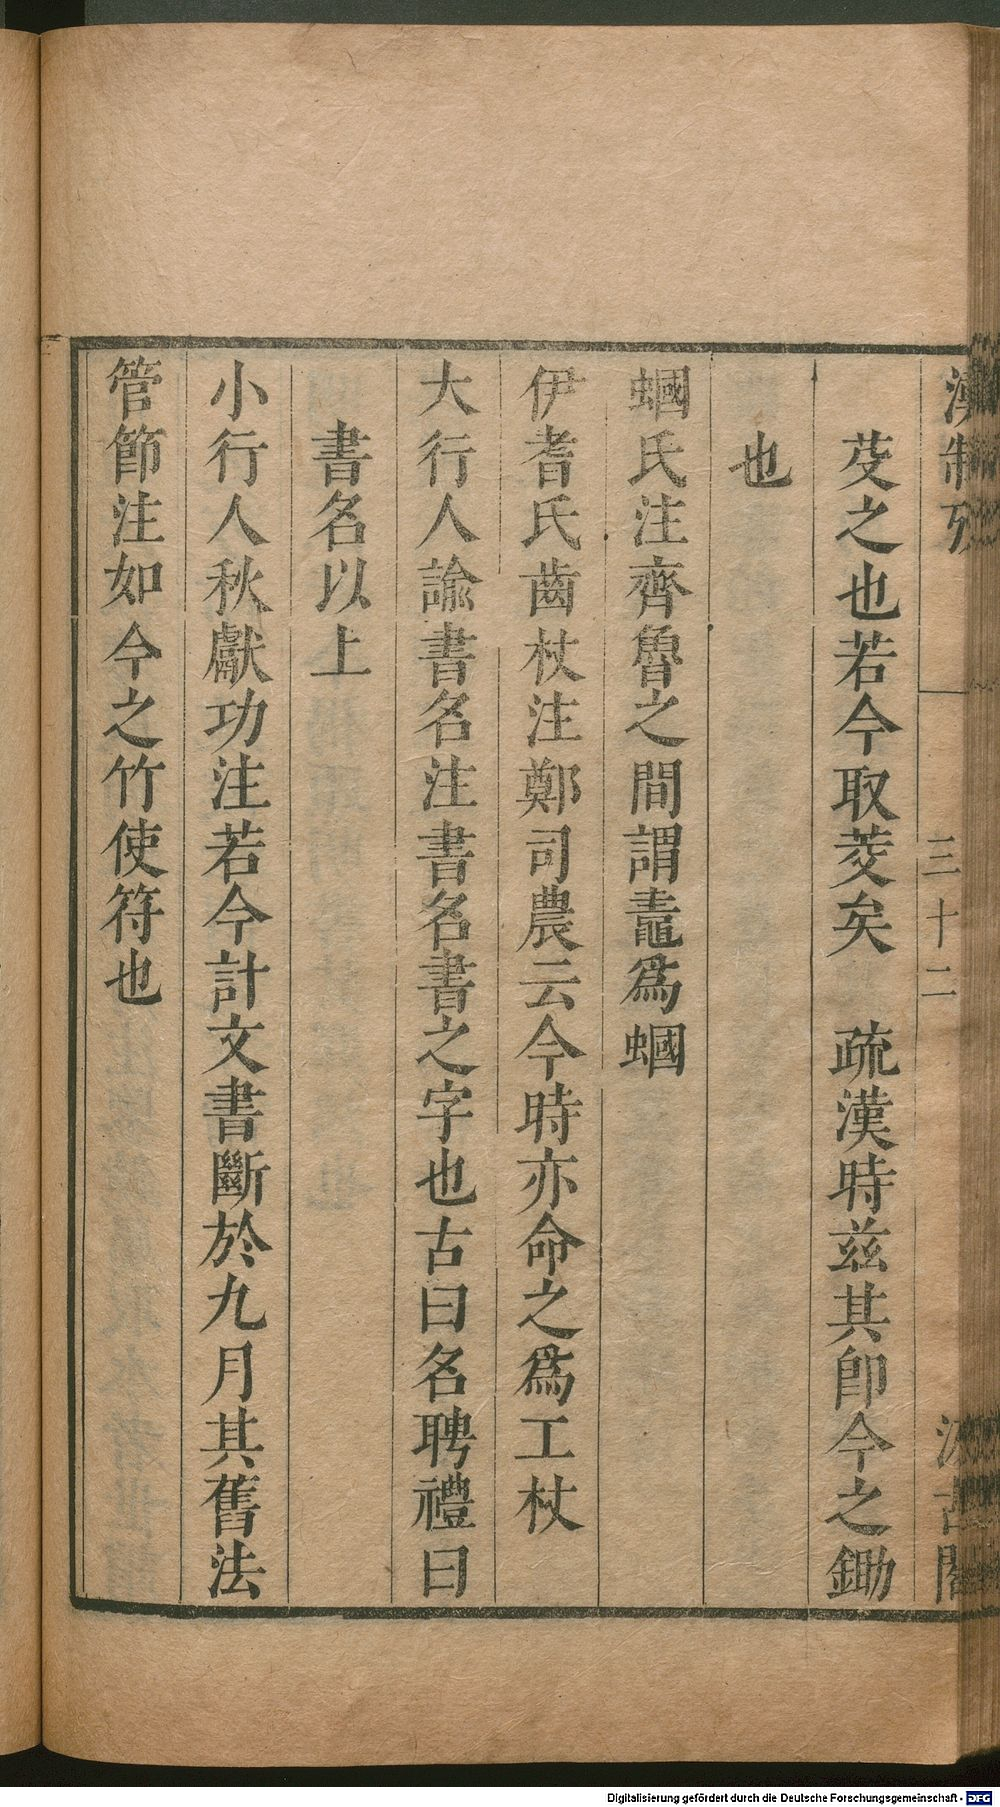 漢制攷
三十二
汲古閣
芟之也若今取茭矣　疏漢時兹其卽今之鋤
也
蟈氏注齊魯之間謂鼃爲蟈
伊耆氏齒杖注鄭司農云今時亦命之爲王杖
大行人諭書名注書名書之字也古曰名聘禮曰
書名以上
小行人秋獻功注若今計文書斷於九月其舊法
管節注如今之竹使符也
Digitalisierung gefördert durch die Deutsche Forschungsgemeinschaft - DFG